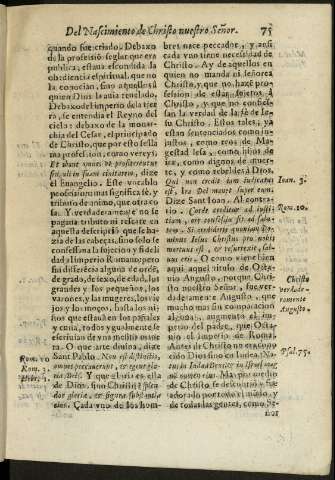 Del Nascimiento de Christo nuestro Señor. 75
quando fue criado. Debaxo
de la professió seglar que era
publica, estaua escondida la
obediencia espiritual, que no
la conocian, sino aquellos a
quien Dios la auia reuelado.
Debaxo del imperio de la tierra,
se entendia el Reyno del
cielo: debaxo de la monarchia
del Cesar, el principado
de Christo, que por esto se llama
profession, como vereys,
Et ibant omnes vt profiterentur
singuli in suam ciuitatem, dize
el Euangelio. Este vocablo
professió mas significa fè, y
tributo de animo, que otra cosa.
Y verdaderamẽte no es
tributo ni rescate en
aquesta descripció que se hazia
de las cabeças, sino solo se
confessaua la sujeció y fidelidad
al Imperio Romano; pero
sin differécia alguna de ordé,
de grado, de sexo, de edad, los
grandes y los pequeños, los
varones, y las mugeres, los viejos
y los moços, hasta los niños
que estauan en los pañales
y cuna, todos ygualmente se
escriuian en esta professión.
O que arte diuina, dize
Sant Pablo. Non est distinctio,
omnes peccauerunt, et egent gloria
Dei. Y que gloria es la
de Dios, sino Christo? splendor
gloriæ, et figura substantiæ
eius. Cada vno de los hombres
nace peccador, y ansi
cada vno tiene necessidad de
Christo. Ay de aquellos en
quien no manda ni señorea
Christo, y que no hazé professión
de estar sujetos à
Christo, y que no confiessan
la verdad de la fè de Iesu
Christo. Estos tales, ya
están sentenciados como injustos,
como reos de Magestad
lesa, como hijos de ira,
como dignos de muerte,
y como rebeldes à Dios.
Qui non credit iam iudicatus
est, Ira Dei manet super eum,
Dize Sant Ioan. Al contrario.
Corde creditur ad iustitiam,
ore autem fit confessio
ad salutem. Si credideris quoniam Dominum
Iesus Christus pro nobis
mortuus est, et resurrexit, saluus
eris. O como viene bien
aqui aquel titulo de Octauio
Augusto, porque Christo
nuestro Señor, fue verdaderamente
Augusto, que
mucho mas sin comparación
aumento el imperio
del padre, que Octauio
el imperio de Roma.
Antes de Christo era conocido
Dios sino en Iudea, Notus
in Iudæa Deus: in Israel magnum
nomen eius. Mas por medio
de Christo se descubrió y fue
adorado por todo el mundo, y
de todas las gentes, como Señor
Rom. 10.
Rom. 3.
Hebr. 1.
Ioan. 3.
Rom. 10.
Christo
verdaderamente
Augusto.
Psal. 75.